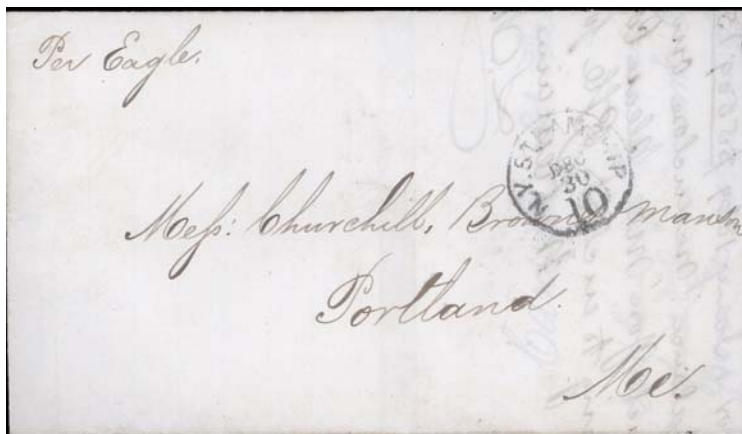 Per Eagle.
N.Y. STEAMSHIP
DEC
30
10
Mess: Churchill, Browns & Manson
Portland.
Me.